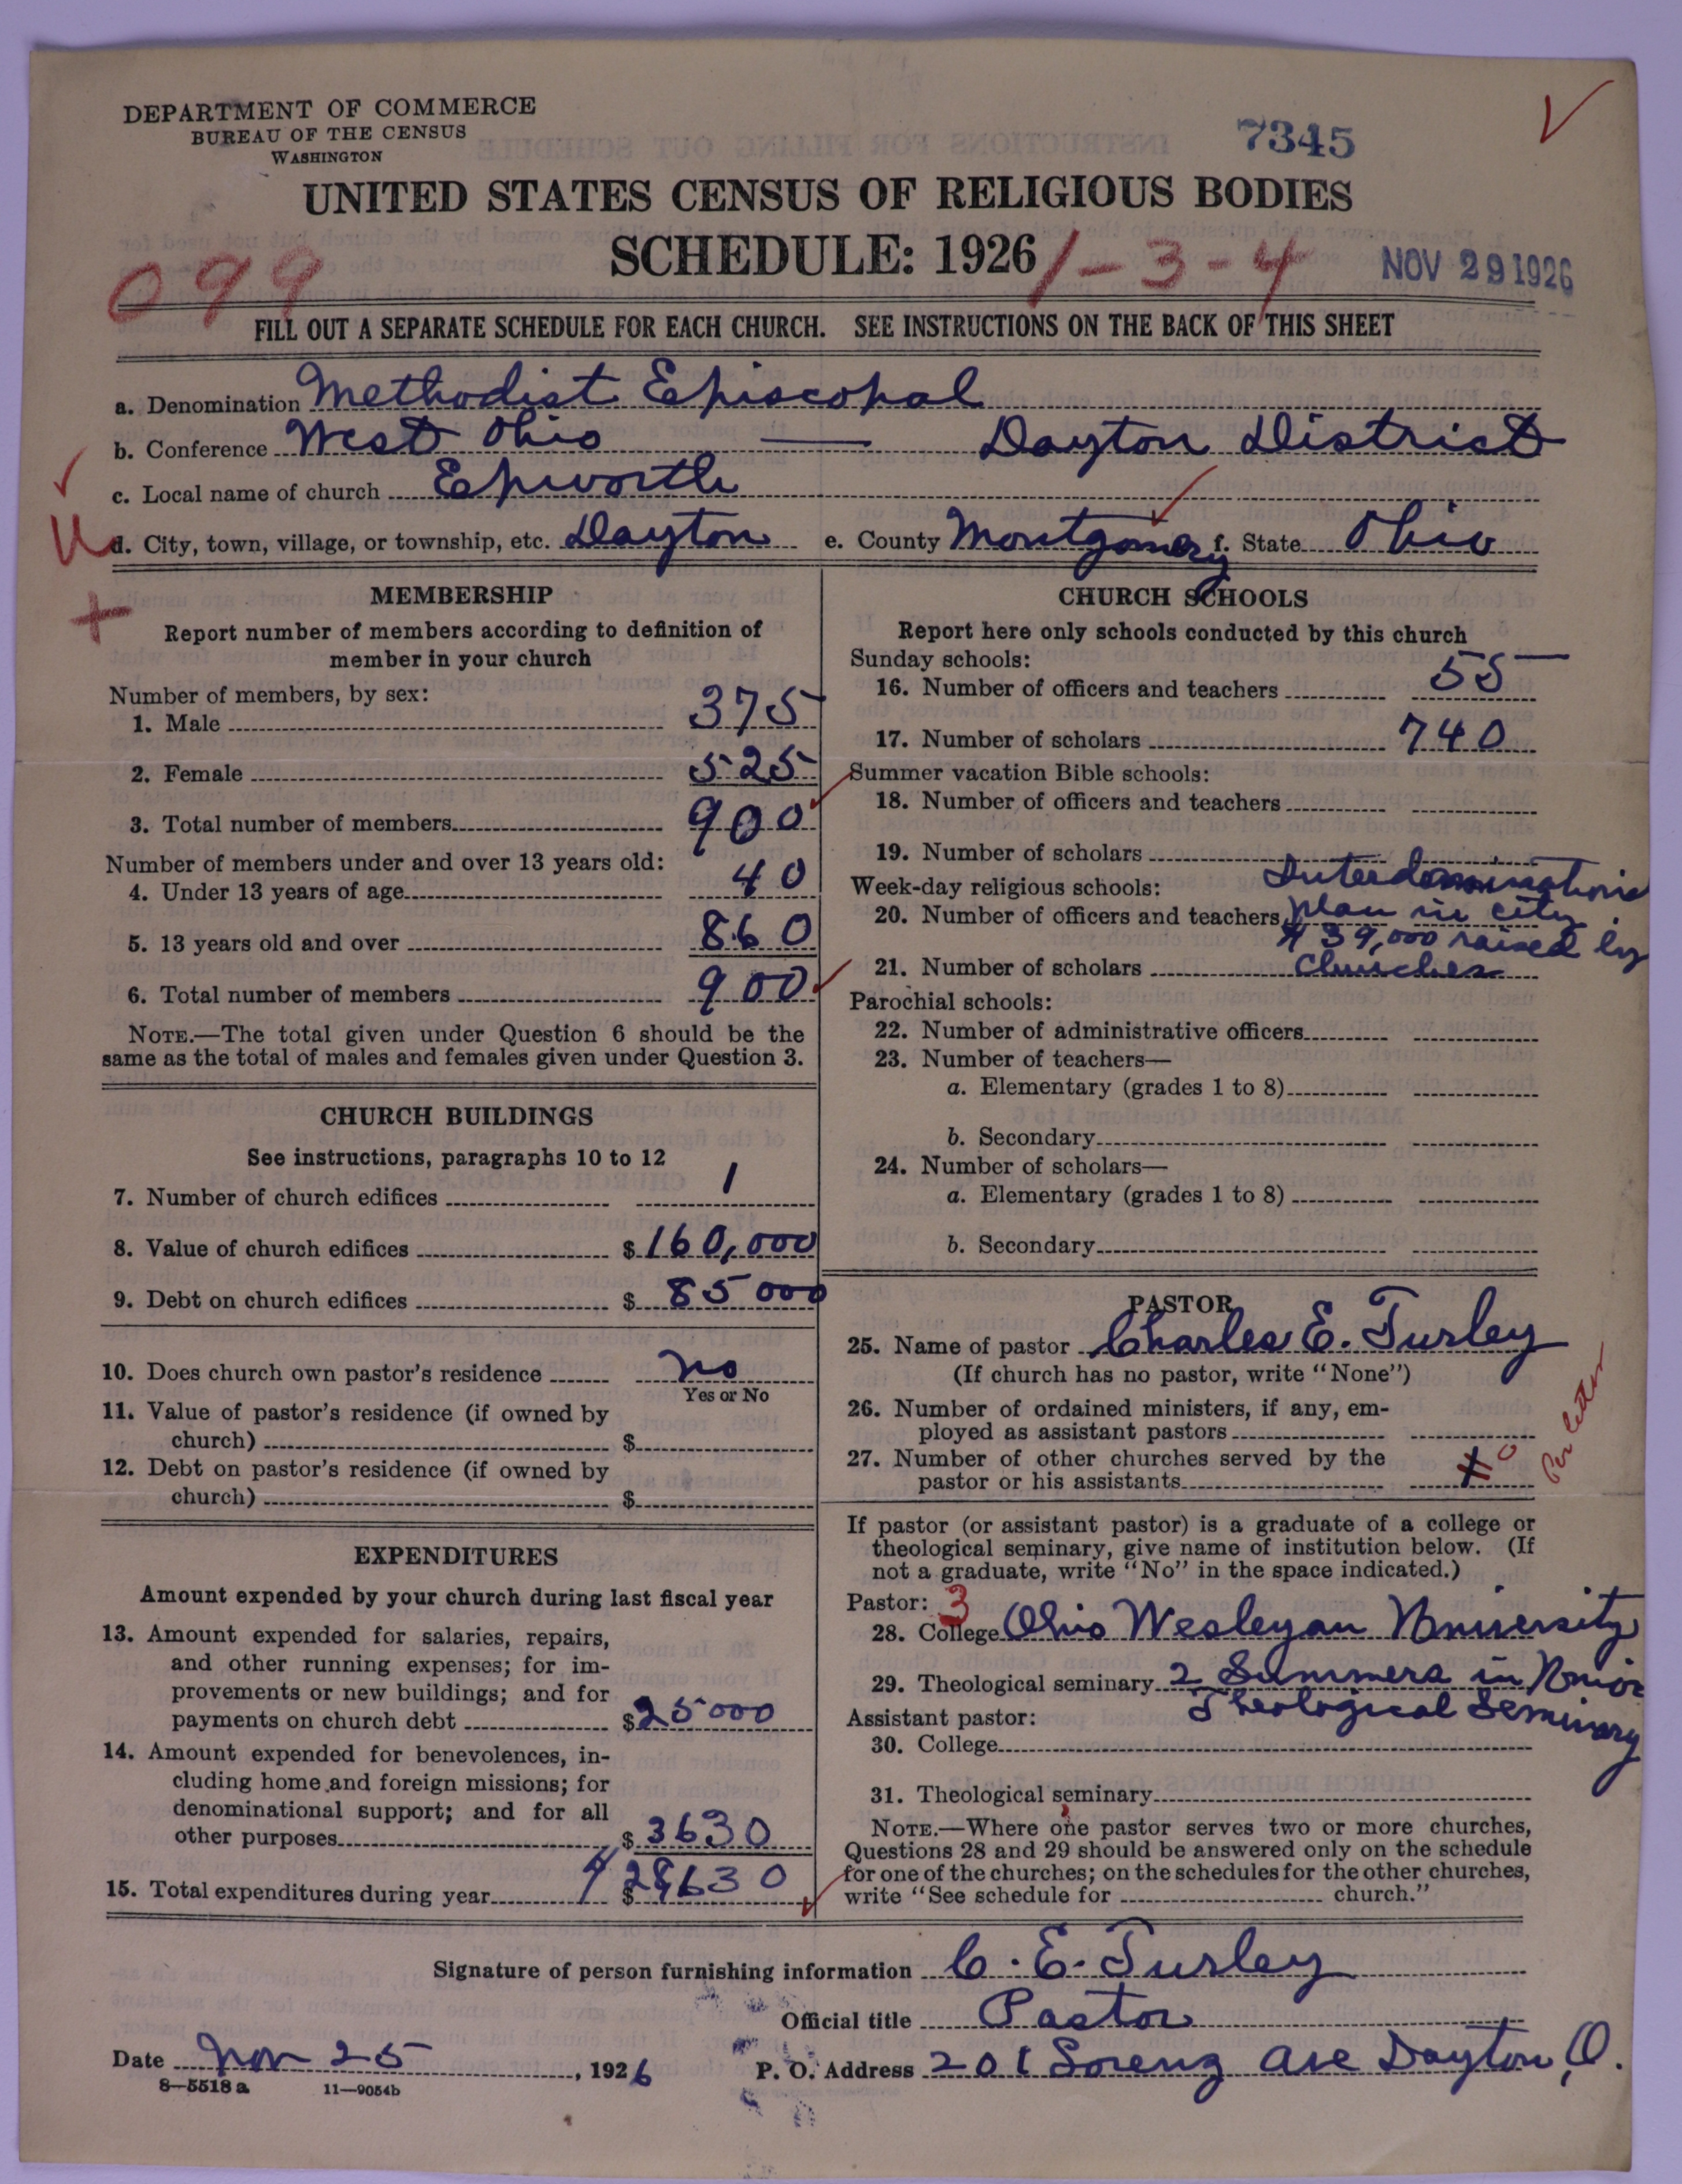 DEPARTMENT OF COMMERCE
BUREAU OF THE CENSUS
WASHINGTON
7345
UNITED STATES CENSUS OF RELIGIOUS BODIES
SCHEDULE: 1926
1-3-4
NOV 29 1926
099
FILL OUT A SEPARATE SCHEDULE FOR EACH CHURCH. SEE INSTRUCTIONS ON THE BACK OF THIS SHEET
a. Denomination Methodist Episcopal
b. Conference West Ohio — Dayton District
c. Local name of church Epworth
d. City, town, village, or township, etc. Dayton e. County Montgomery f. State Ohio
MEMBERSHIP
Report number of members according to definition of
member in your church
Number of members, by sex:
1. Male 375
2. Female 525
3. Total number of members 900
Number of members under and over 13 years old:
4. Under 13 years of age 40
5. 13 years old and over 860
6. Total number of members 900
NOTE.—The total given under Question 6 should be the
same as the total of males and females given under Question 3.
CHURCH BUILDINGS
See instructions, paragraphs 10 to 12
7. Number of church edifices 1
8. Value of church edifices $160,000
9. Debt on church edifices $85000
10. Does church own pastor's residence no
Yes or No
11. Value of pastor's residence (if owned by
church) $
12. Debt on pastor's residence (if owned by
church) $
EXPENDITURES
Amount expended by your church during last fiscal year
13. Amount expended for salaries, repairs,
and other running expenses; for im-
provements or new buildings; and for
payments on church debt $25000
14. Amount expended for benevolences, in-
cluding home and foreign missions; for
denominational support; and for all
other purposes $3630
15. Total expenditures during year $28630
CHURCH SCHOOLS
Report here only schools conducted by this church
Sunday schools:
16. Number of officers and teachers 55
17. Number of scholars 740
Summer vacation Bible schools:
18. Number of officers and teachers
19. Number of scholars
Week-day religious schools: Interdenominational
20. Number of officers and teachers plan in city.
$39,000 raised by
21. Number of scholars Churches
Parochial schools:
22. Number of administrative officers
23. Number of teachers—
a. Elementary (grades 1 to 8)
b. Secondary
24. Number of scholars—
a. Elementary (grades 1 to 8)
b. Secondary
PASTOR
25. Name of pastor Charles E. Turley
(If church has no pastor, write "None")
26. Number of ordained ministers, if any, em-
ployed as assistant pastors
27. Number of other churches served by the
pastor or his assistants 0
Per letter
If pastor (or assistant pastor) is a graduate of a college or
theological seminary, give name of institution below. (If
not a graduate, write "No" in the space indicated.)
Pastor: 3
28. College Ohio Wesleyan University
29. Theological seminary 2 Summers in Union
Theological Seminary
Assistant pastor:
30. College
31. Theological seminary
NOTE.—Where one pastor serves two or more churches,
Questions 28 and 29 should be answered only on the schedule
for one of the churches; on the schedules for the other churches,
write "See schedule for church."
Signature of person furnishing information C. E. Turley
Official title Pastor
Date Nov 25, 1926 P. O. Address 201 Lorenz Ave Dayton, O.
8—5518a 11—9054b